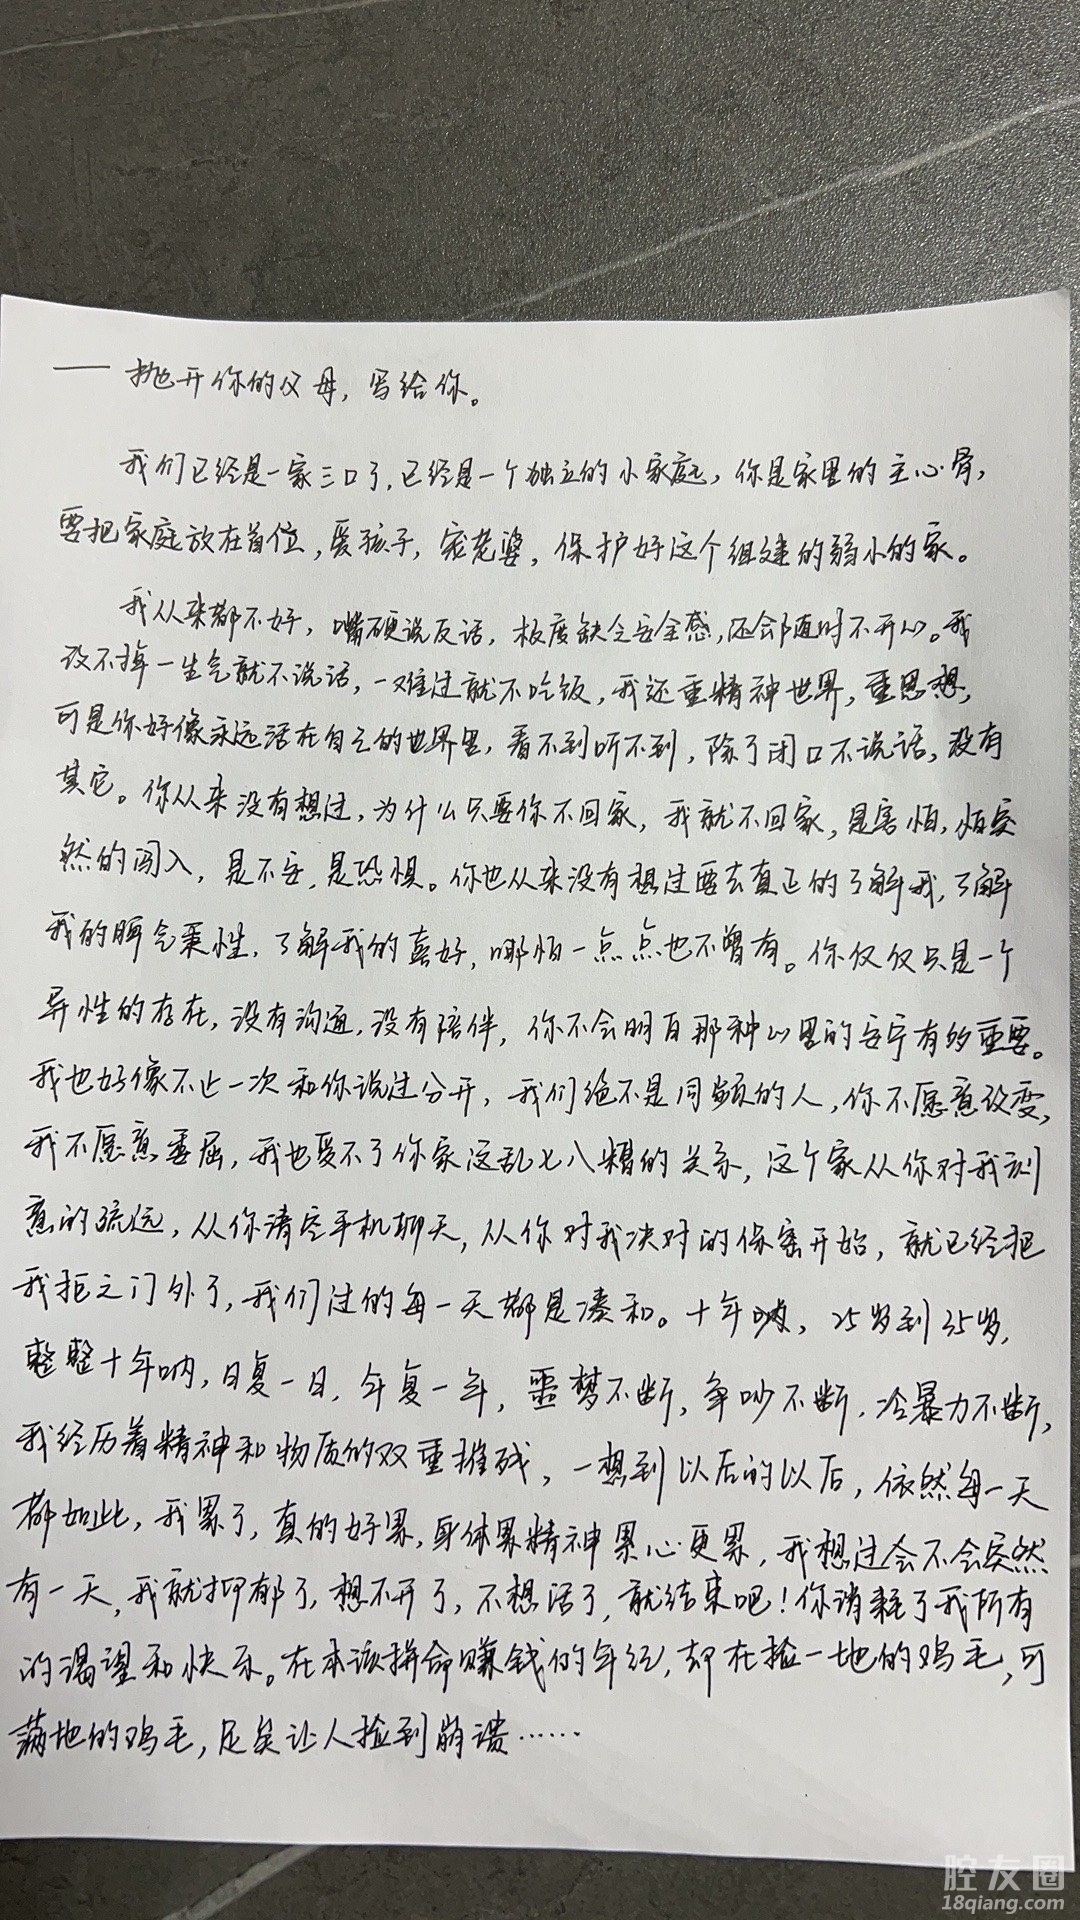 —— 抛开你的父母，写给你。
我们已经是一家三口了，已经是一个独立的小家庭，你是家里的主心骨，
要把家庭放在首位，爱孩子，宠老婆，保护好这个组建的弱小的家。
我从来都不好，嘴硬说反话，极度缺乏安全感，还会随时不开心。我
改不掉一生气就不说话，一难过就不吃饭，我还重精神世界，重思想，
可是你好像永远活在自己的世界里，看不到听不到，除了闭口不说话，没有
其它。你从来没有想过，为什么只要你不回家，我就不回家，是害怕，怕突
然的闯入，是不安，是恐惧。你也从来没有想过要去真正的了解我，了解
我的脾气秉性，了解我的喜好，哪怕一点点也不曾有。你仅仅只是一个
异性的存在，没有沟通，没有陪伴，你不会明白那种心里的安宁有多重要。
我也好像不止一次和你说过分开，我们绝不是同频的人，你不愿意改变，
我不愿意委屈，我也受不了你家这乱七八糟的关系，这个家从你对我刻
意的疏远，从你清空手机聊天，从你对我决对的保密开始，就已经把
我拒之门外了，我们过的每一天都是凑和。十年呐，25岁到35岁，
整整十年呐，日复一日，年复一年，噩梦不断，争吵不断，冷暴力不断，
我经历着精神和物质的双重摧残，一想到以后的以后，依然每一天
都如此，我累了，真的好累，身体累精神累心更累，我想过会不会突然
有一天，我就抑郁了，想不开了，不想活了，就结束吧！你消耗了我所有
的渴望和快乐。在本该拼命赚钱的年纪，却在捡一地的鸡毛，可
满地的鸡毛，足矣让人捡到崩溃……
腔友圈
18qiang.com